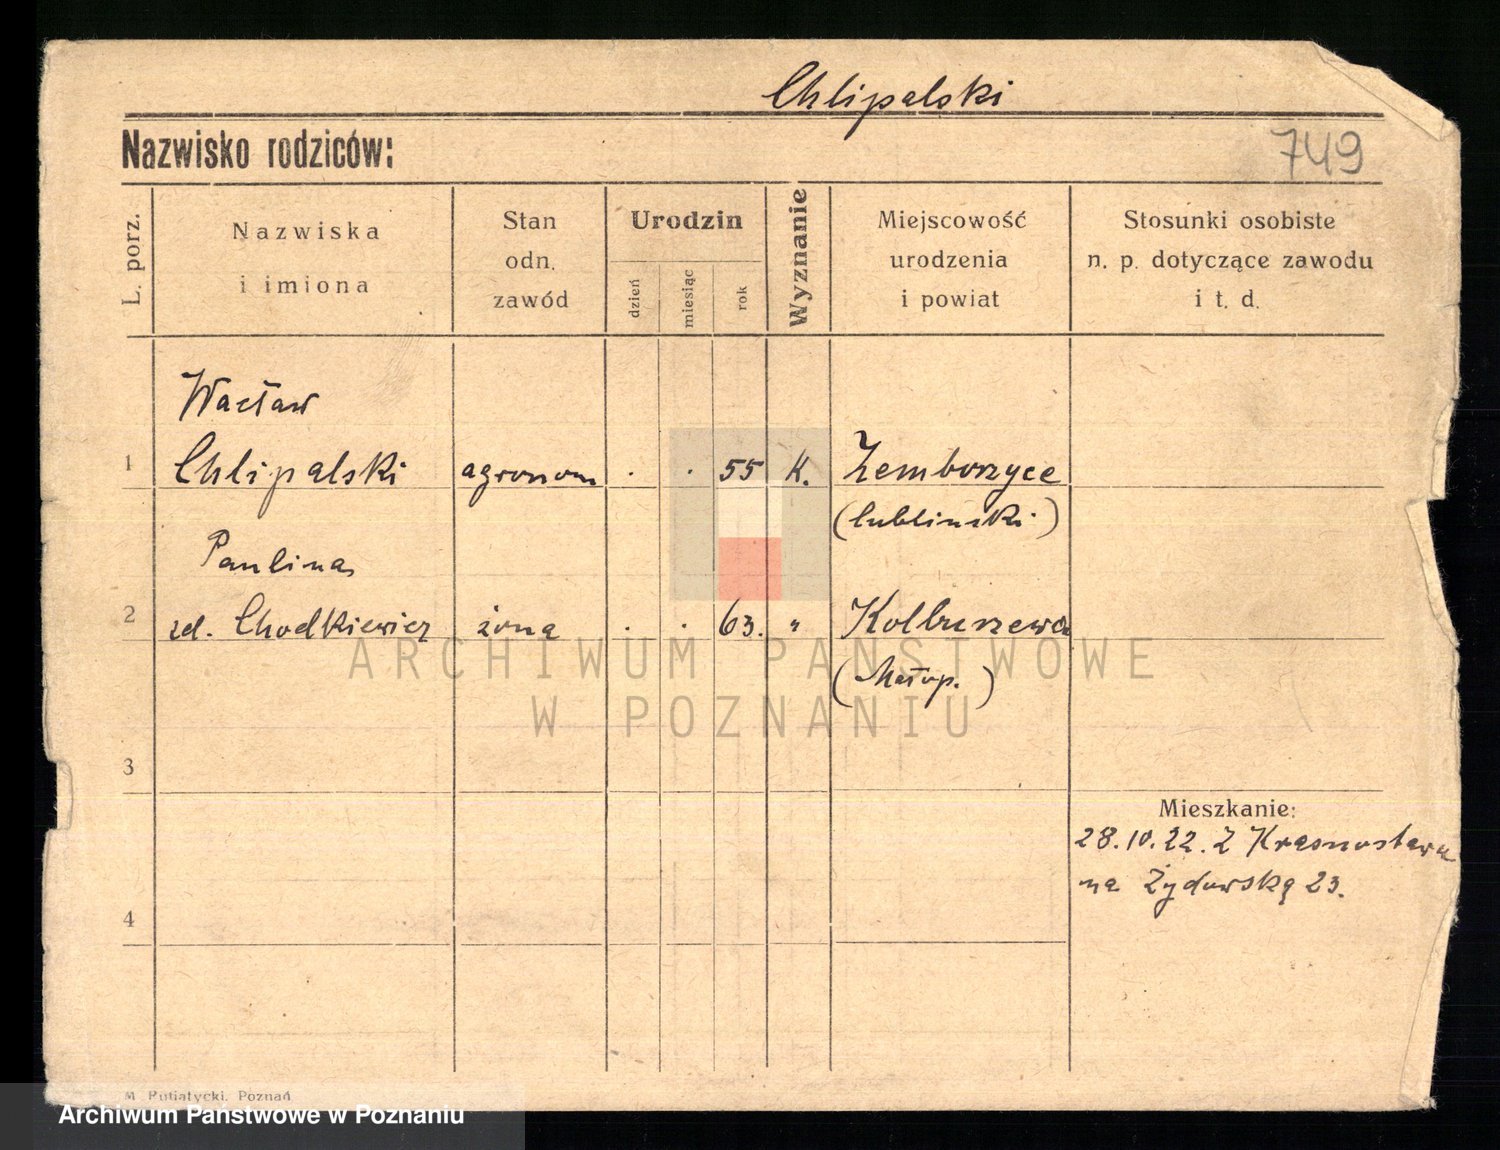 Chlipalski
Nazwisko rodziców:
749
L. porz.
Nazwiska
i imiona
Stan
odn.
zawód
Urodzin
dzień
miesiąc
rok
Wyznanie
Miejscowość
urodzenia
i powiat
Stosunki osobiste
n. p. dotyczące zawodu
i t. d.
Wacław
1 Chlipalski agronom . . 55 K. Zemborzyce
(lubliński)
Paulina
2 zd. Chodkiewicz żona . . 63. " Kolbuszewa
(Małop.)
ARCHIWUM PAŃSTWOWE
W POZNANIU
3
Mieszkanie:
28.10.22. Z Krasnostawu
na Żydowską 23.
4
M Putiatycki, Poznań
Archiwum Państwowe w Poznaniu